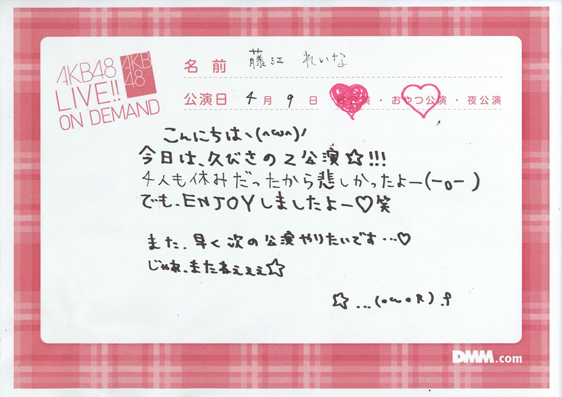 AKB48
LIVE!!
ON DEMAND
AKB
48
名前 藤江 れいな
公演日 4月9日 ・おやつ公演・夜公演
こんにちは、(^ω^)ノ
今日は、久びさの2公演☆!!!
4人も休みだったから悲しかったよー(-o-)
でも、ENJOYしましたよー♡笑
また、早く次の公演やりたいです…♡
じゃぁ、またねぇぇぇ☆
☆…(oωoR).f
DMM.com